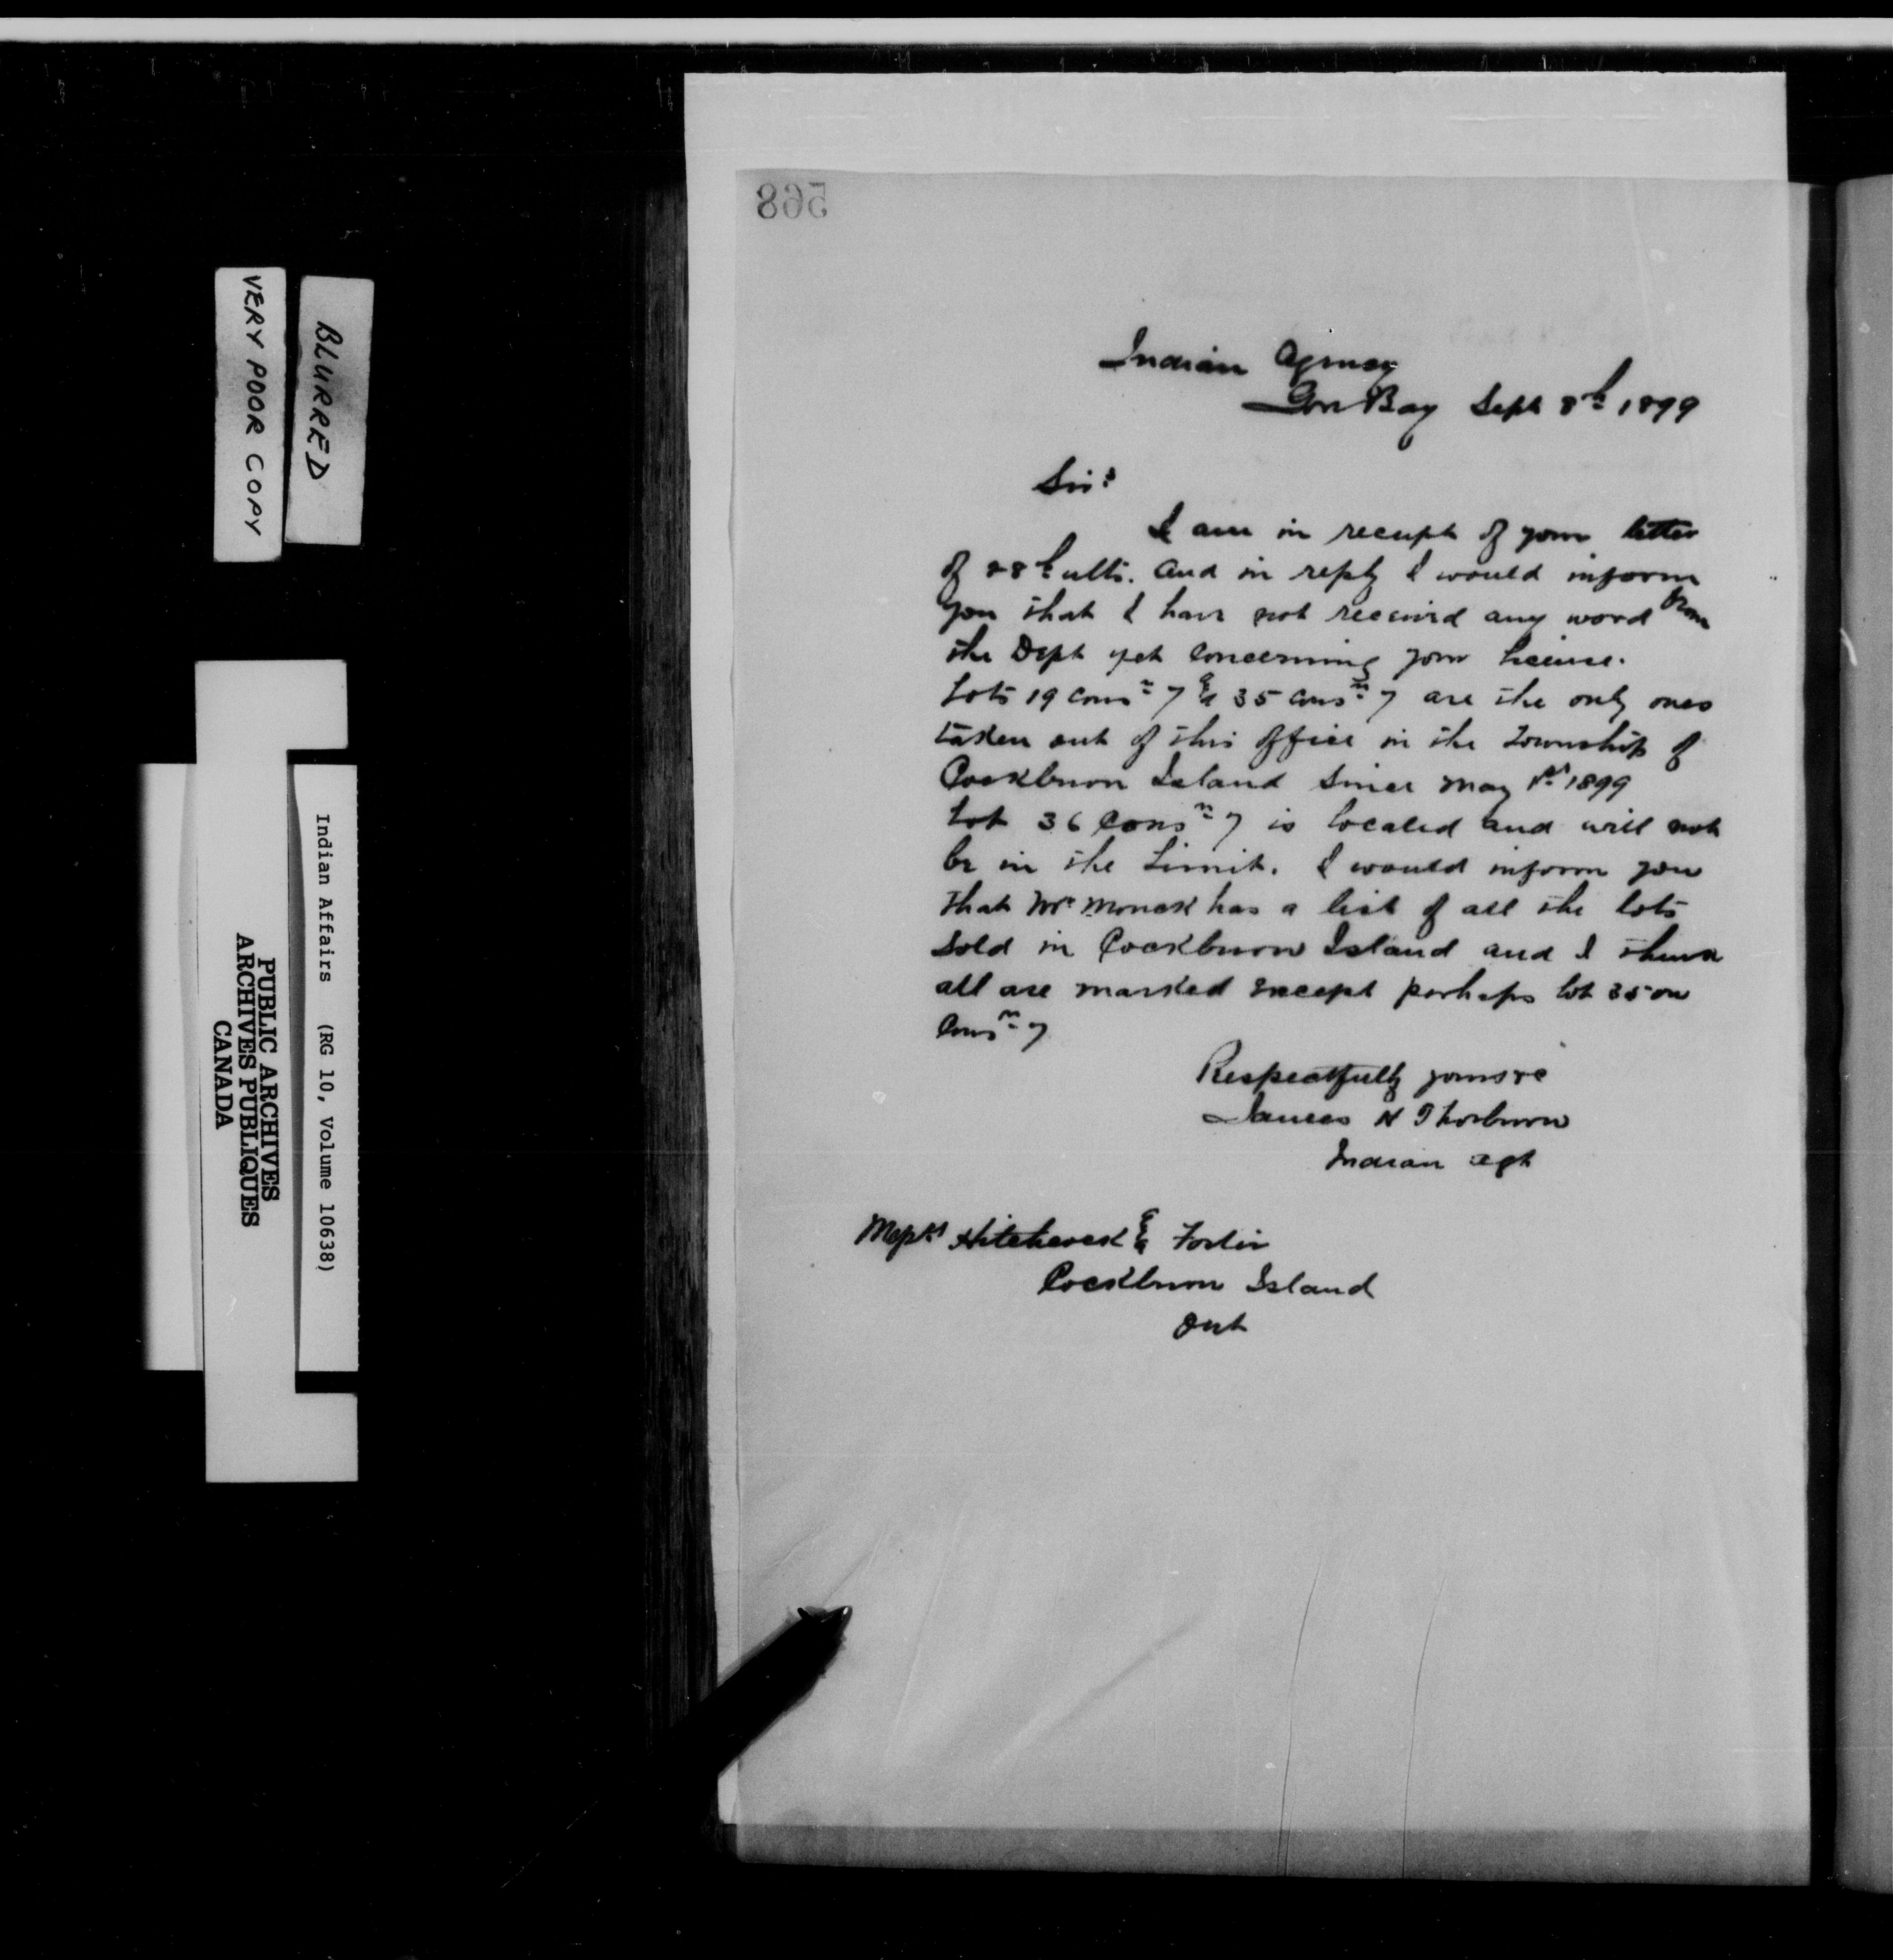 568
Indian Agency
Gore Bay Sept 8th 1899
Sirs
I am in receipt of your letter
of 28th ulto. and in reply I would inform
you that I have not received any word from
the Dept yet concerning your license.
Lots 19 Conn 7 & 35 Conn 7 are the only ones
taken out of this office in the Township of
Cockburn Island since May 1st 1899
Lot 36 Conn 7 is located and will not
be in the Limit. I would inform you
that Mr Monck has a list of all the lots
sold in Cockburn Island and I think
all are marked except perhaps lot 35 on
Conn 7
Respectfully yours &c
James H Thorburn
Indian Agt
Messrs Hitchcock & Fortin
Cockburn Island
Ont
BLURRED
VERY POOR COPY
Indian Affairs (RG 10, Volume 10638)
PUBLIC ARCHIVES
ARCHIVES PUBLIQUES
CANADA